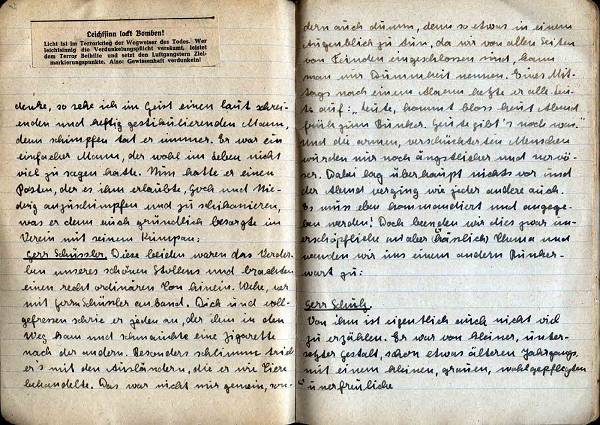 Leichtsinn lockt Bomben!
Licht ist im Terrorkrieg der Wegweiser des Todes. Wer
leichtsinnig die Verdunkelungspflicht versäumt, leistet
dem Terror Beihilfe und setzt den Luftgangstern Ziel-
markierungspunkte. Also: Gewissenhaft verdunkeln!
denke, so sehe ich im Geist einen laut schrei-
enden und heftig gestikulierenden Mann,
denn schimpfen tat er immer. Er war ein
einfacher Mann, der wohl im Leben nicht
viel zu sagen hatte. Nun hatte er einen
Posten, der es ihm erlaubte, Hoch und Nie-
drig anzuschimpfen und zu schikanieren,
was er denn auch gründlich besorgte im
Verein mit seinem Kumpan:
Herr Schüssler. Diese beiden waren das Verder-
ben unseres schönen Stollens und brachten
einen recht ordinären Ton hinein. Wehe, wer
mit Herrn Schüssler anband. Dick und voll-
gefressen schrie er jeden an, der ihm in den
Weg kam und schmauchte eine Zigarette
nach der andern. Besonders schlimm trieb
er's mit den Ausländern, die er wie Tiere
behandelte. Das war nicht nur gemein, son-
dern auch dumm, denn so etwas in einem
Augenblick zu tun, da wir von allen Seiten
von Feinden eingeschlossen sind, kann
man nur Dummheit nennen. Eines Mit-
tags nach einem Alarm hetzte er alle Leu-
te auf: „Leute, kommt bloss heut Abend
früh zum Bunker. Heute gibt's noch was."
Und die armen, verschüchterten Menschen
wurden nur noch ängstlicher und nervö-
ser. Dabei lag überhaupt nichts vor und
der Abend verging wie jeder andere auch.
Es muss eben kommandiert und angege-
ben werden! Doch beenden wir dies zwar un-
erschöpfliche aber hässliche Thema und
wenden wir uns einem andern Bunker-
wart zu:
Herr Schulz.
Von ihm ist eigentlich auch nicht viel
zu erzählen. Er war von kleiner, unter-
setzter Gestalt, schon etwas älteren Jahrgangs
mit einem kleinen, grauen, wohlgepflegten
unerfreuliche